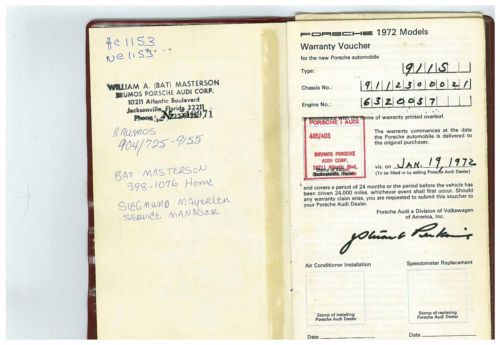 AC1153
NC1153...
WILLIAM A. (BAT) MASTERSON
BRUMOS PORSCHE AUDI CORP.
10211 Atlantic Boulevard
Jacksonville, Florida 32211
Phone
BRUMOS
904/725-9155
BAT MASTERSON
398-1076 Home
SIEGMUND
SERVICE MANAGER
PORSCHE 1972 Models
Warranty Voucher
for the new Porsche automobile
Type: 911S
Chassis No.: 9112300021
Engine No.: 6320037
in accordance with the terms of warranty printed overleaf.
PORSCHE AUDI
405/A03
BRUMOS PORSCHE
AUDI CORP.
10211 Atlantic Blvd.
Jacksonville, Florida
The warranty commences at the date
the Porsche automobile is delivered to
the original purchaser.
viz. on JAN. 19, 1972
(To be filled in by selling Porsche Audi Dealer)
and covers a period of 24 months or the period before the vehicle has
been driven 24,000 miles, whichever event shall first occur. Should
any warranty claim arise, you are requested to submit this voucher to
your Porsche Audi Dealer.
Porsche Audi a Division of Volkswagen
of America, Inc.
Air Conditioner Installation
Speedometer Replacement
Stamp of installing
Porsche Audi Dealer
Stamp of replacing
Porsche Audi Dealer
Date
Date